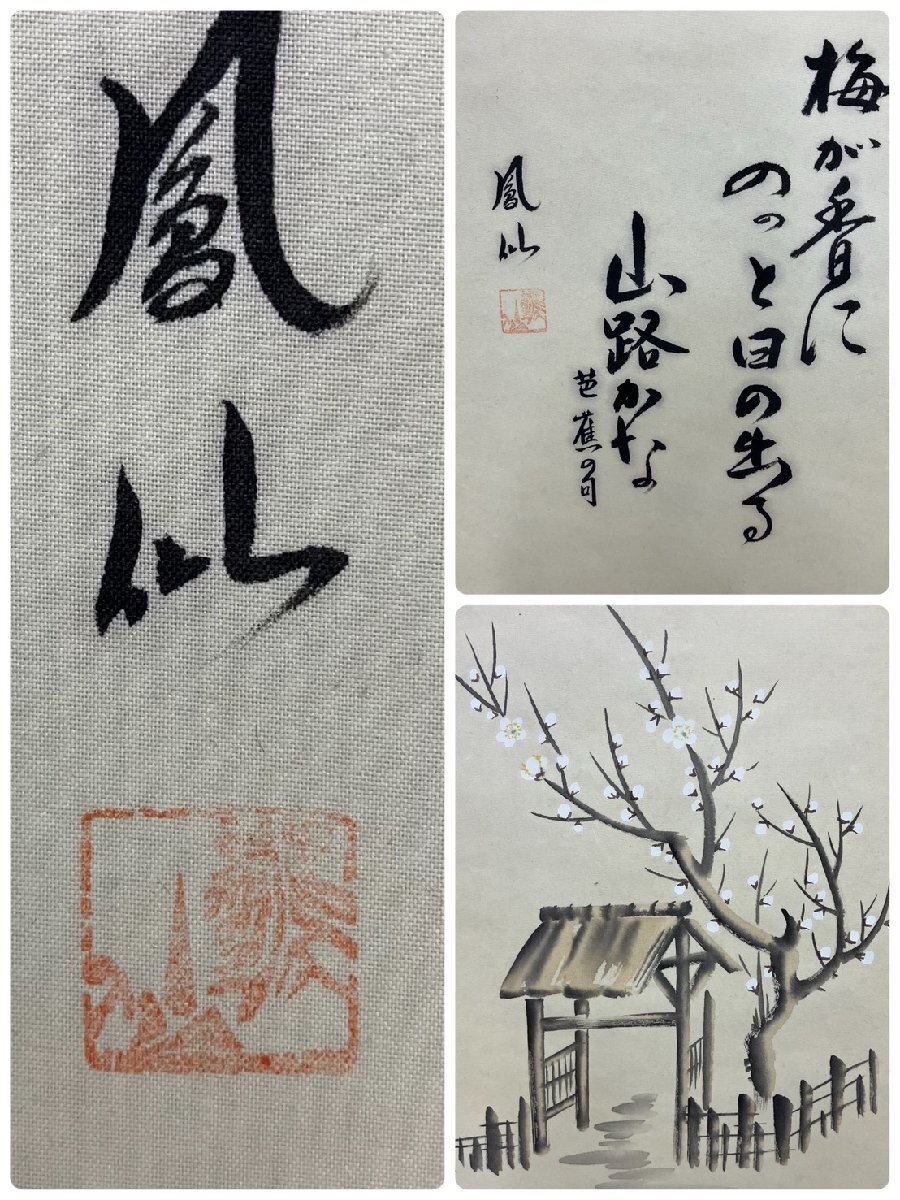 梅が香に
のっと日の出る
山路かな
芭蕉の句
鳳仙
鳳仙